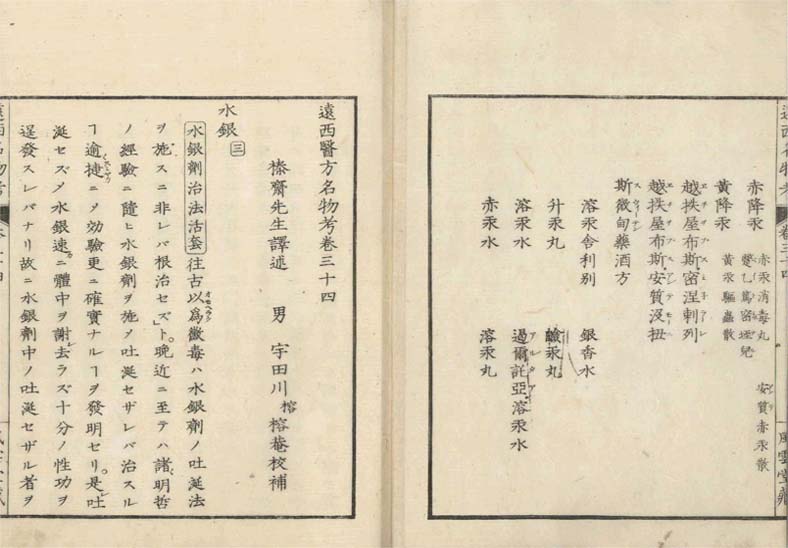 赤降汞
赤汞消毒丸
安質赤汞散
黄降汞
黄汞驅蟲散
越抶屋布斯密涅剌列
越抶屋布斯安質没扭
斯微甸藥酒方
溶汞舍利別
銀香水
升汞丸
鹼汞丸
溶汞水
過爾託亞溶汞水
赤汞水
溶汞丸
風雲堂藏
遠西醫方名物考卷三十四
榛齋先生譯述 男 宇田川榕 榕菴校補
水銀 三
水銀劑治法活套 往古以爲オモヘラク黴毒ハ水銀劑ノ吐涎法
ヲ施スニ非レバ根治セズト晩近ニ至テハ諸明哲
ノ經驗ニ隨ヒ水銀劑ヲ施ノ吐涎セザレバ治スル
ヿ逾捷ニノ効驗更ニ確實ナルヿヲ發明セリ是吐
涎セズノ水銀速ニ體中ヲ謝去ラズ十分ノ性功ヲ
逞發スレバナリ故ニ水銀劑中ノ吐涎セザル者ヲ